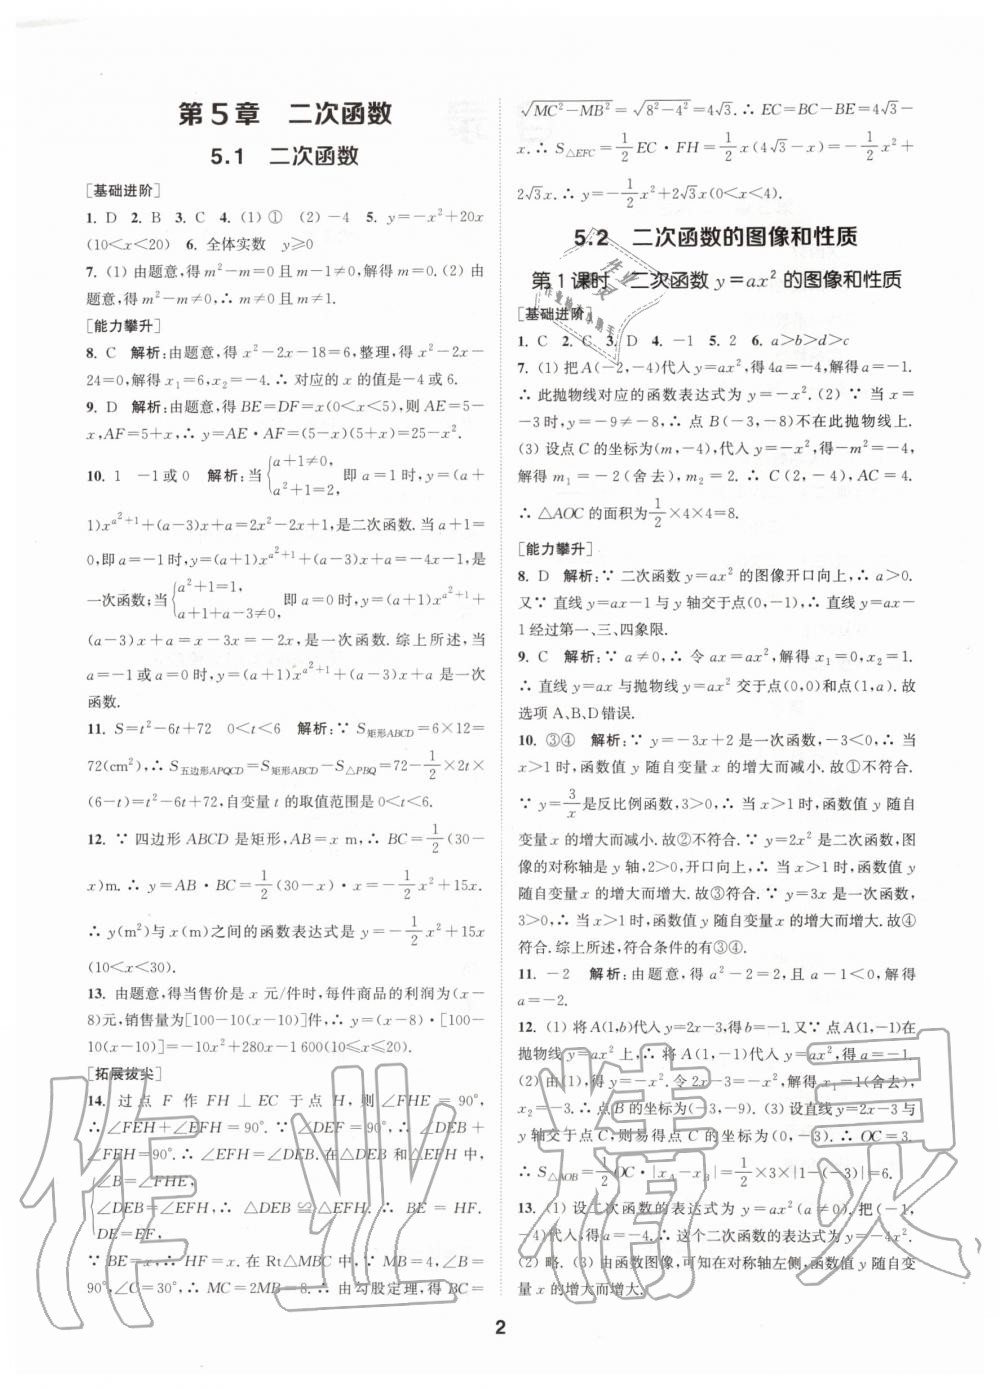 第5章 二次函数
5.1 二次函数
[基础进阶]
1. D 2. B 3. C 4. (1) ① (2) -4 5. y=-x²+20x
(10<x<20) 6. 全体实数 y≥0
7. (1) 由题意,得 m²-m=0 且 m-1≠0,解得 m=0. (2) 由
题意,得 m²-m≠0,∴ m≠0 且 m≠1.
[能力攀升]
8. C 解析:由题意,得 x²-2x-18=6,整理,得 x²-2x-
24=0,解得 x₁=6,x₂=-4.∴ 对应的 x 的值是-4或6.
9. D 解析:由题意,得 BE=DF=x(0<x<5),则 AE=5-
x,AF=5+x,∴ y=AE·AF=(5-x)(5+x)=25-x².
10. 1 -1或0 解析:当{a+1≠0, a²+1=2, 即 a=1 时,y=(a+
1)x^{a²+1}+(a-3)x+a=2x²-2x+1,是二次函数. 当 a+1=
0,即 a=-1 时,y=(a+1)x^{a²+1}+(a-3)x+a=-4x-1,是
一次函数;当{a²+1=1, a+1+a-3≠0, 即 a=0 时,y=(a+1)x^{a²+1}+
(a-3)x+a=x-3x=-2x,是一次函数. 综上所述,当
a=-1 或 a=0 时,y=(a+1)x^{a²+1}+(a-3)x+a 是一次
函数.
11. S=t²-6t+72 0<t<6 解析:∵ S矩形ABCD=6×12=
72(cm²),∴ S五边形APQCD=S矩形ABCD-S△PBQ=72-1/2×2t×
(6-t)=t²-6t+72,自变量 t 的取值范围是 0<t<6.
12. ∵ 四边形 ABCD 是矩形,AB=x m,∴ BC=1/2(30-
x)m. ∴ y=AB·BC=1/2(30-x)·x=-1/2x²+15x.
∴ y(m²)与 x(m)之间的函数表达式是 y=-1/2x²+15x
(10<x<30).
13. 由题意,得当售价是 x 元/件时,每件商品的利润为(x-
8)元,销售量为[100-10(x-10)]件,∴ y=(x-8)·[100-
10(x-10)]=-10x²+280x-1 600(10≤x≤20).
[拓展拔尖]
14. 过点 F 作 FH⊥EC 于点 H,则∠FHE=90°.
∴ ∠FEH+∠EFH=90°. ∵ ∠DEF=90°,∴ ∠DEB+
∠FEH=90°.∴ ∠DEB=∠EFH.在△DEB 和△EFH 中,
{∠B=∠FHE,
∠DEB=∠EFH,∴ △DEB≌△EFH.∴ BE=HF.
DE=EF,
∵ BE=x,∴ HF=x. 在 Rt△MBC 中,∵ MB=4,∠B=
90°,∠C=30°,∴ MC=2MB=8.∴ 由勾股定理,得 BC=
√(MC²-MB²)=√(8²-4²)=4√3.∴ EC=BC-BE=4√3-
x.∴ S△EFC=1/2EC·FH=1/2x(4√3-x)=-1/2x²+
2√3x.∴ y=-1/2x²+2√3x(0<x<4).
5.2 二次函数的图像和性质
第1课时 二次函数 y=ax² 的图像和性质
[基础进阶]
1. C 2. C 3. D 4. -1 5. 2 6. a>b>d>c
7. (1) 把 A(-2,-4)代入 y=ax²,得 4a=-4,解得 a=-1.
∴ 此抛物线对应的函数表达式为 y=-x². (2) ∵ 当 x=
-3时,y=-9≠-8,∴ 点 B(-3,-8)不在此抛物线上.
(3) 设点 C 的坐标为(m,-4),代入 y=-x²,得-m²=-4,
解得 m₁=-2(舍去),m₂=2. ∴ C(2,-4),AC=4.
∴ △AOC 的面积为1/2×4×4=8.
[能力攀升]
8. D 解析:∵ 二次函数 y=ax² 的图像开口向上,∴ a>0.
又∵ 直线 y=ax-1 与 y 轴交于点(0,-1),∴ 直线 y=ax-
1 经过第一、三、四象限.
9. C 解析:∵ a≠0,∴ 令 ax=ax²,解得 x₁=0,x₂=1.
∴ 直线 y=ax 与抛物线 y=ax² 交于点(0,0)和点(1,a).故
选项 A、B、D错误.
10. ③④ 解析:∵ y=-3x+2 是一次函数,-3<0,∴ 当
x>1时,函数值 y 随自变量 x 的增大而减小.故①不符合.
∵ y=3/x是反比例函数,3>0,∴ 当 x>1 时,函数值 y 随自
变量 x 的增大而减小.故②不符合.∵ y=2x² 是二次函数,图
像的对称轴是 y 轴,2>0,开口向上,∴ 当 x>1 时,函数值 y
随自变量 x 的增大而增大.故③符合.∵ y=3x 是一次函数,
3>0,∴ 当 x>1 时,函数值 y 随自变量 x 的增大而增大.故④
符合.综上所述,符合条件的有③④.
11. -2 解析:由题意,得 a²-2=2,且 a-1<0,解得
a=-2.
12. (1) 将 A(1,b)代入 y=2x-3,得 b=-1.又∵ 点 A(1,-1)在
抛物线 y=ax² 上,∴ 将 A(1,-1)代入 y=ax²,得 a=-1.
(2) 由(1),得 y=-x².令 2x-3=-x²,解得 x₁=1(舍去),
x₂=-3.∴ 点 B 的坐标为(-3,-9). (3) 设直线 y=2x-3 与
y 轴交于点 C,则易得点 C 的坐标为(0,-3).∴ OC=3.
∴ S△AOB=1/2OC·|x_A-x_B|=1/2×3×|1-(-3)|=6.
13. (1) 设二次函数的表达式为 y=ax²(a≠0).把(-1,
-4)代入,得 a=-4.∴ 这个二次函数的表达式为 y=-4x².
(2) 略. (3) 由函数图像,可知在对称轴左侧,函数值 y 随自
变量 x 的增大而增大.
2
作业精灵
作业
精灵